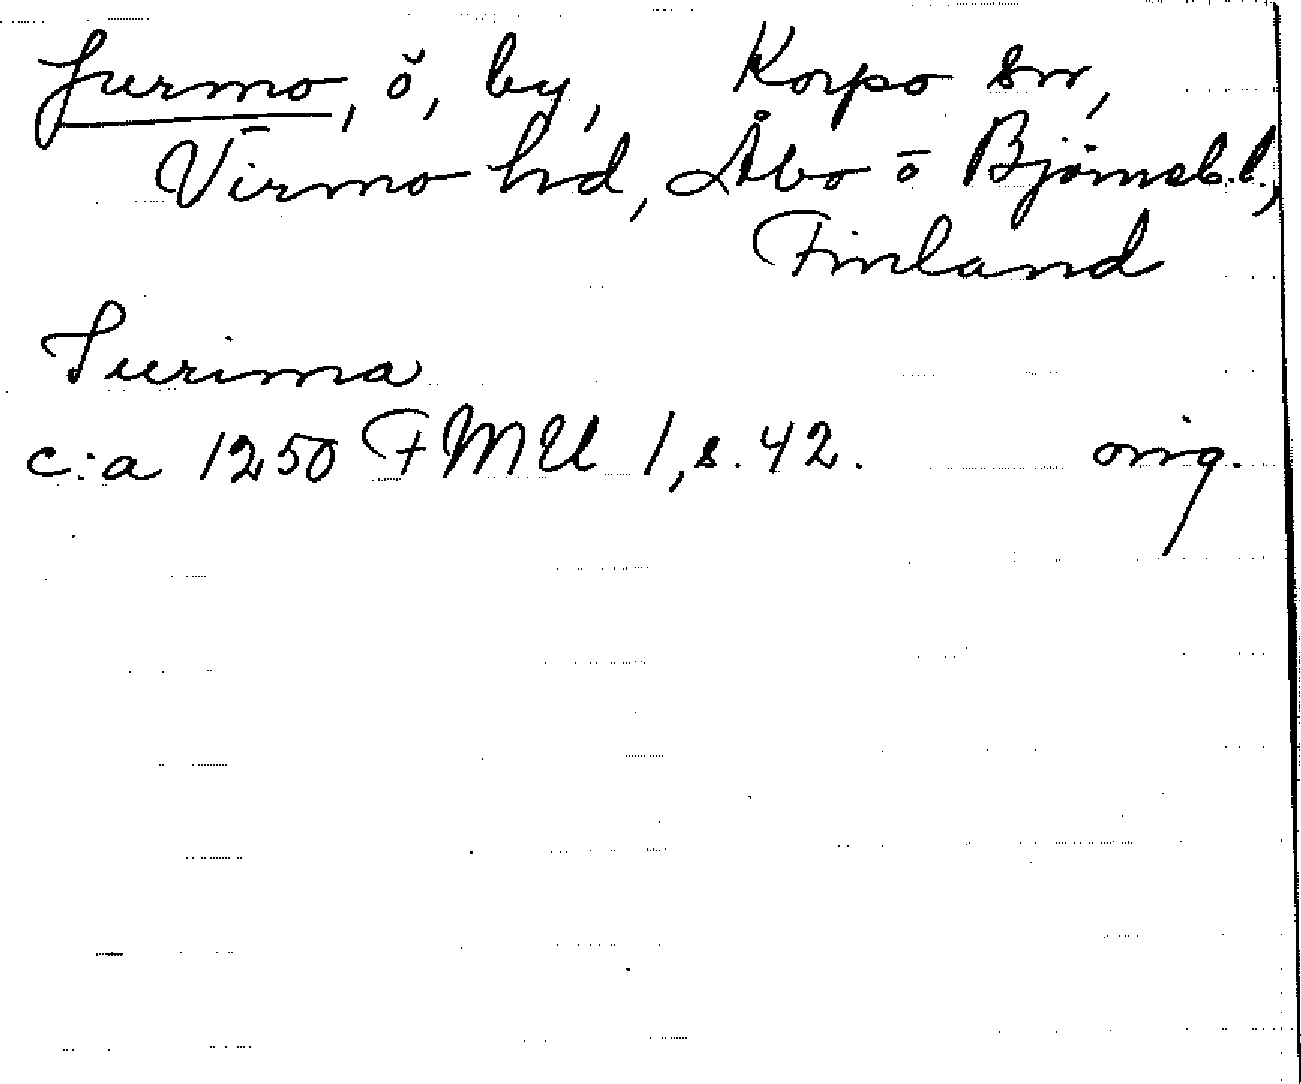 Jurmo, ö, by, Korpo sn,
Virmo hd, Åbo o Björneb. l.,
Finland
Iurima
c:a 1250 FMU 1, s. 42. orig.